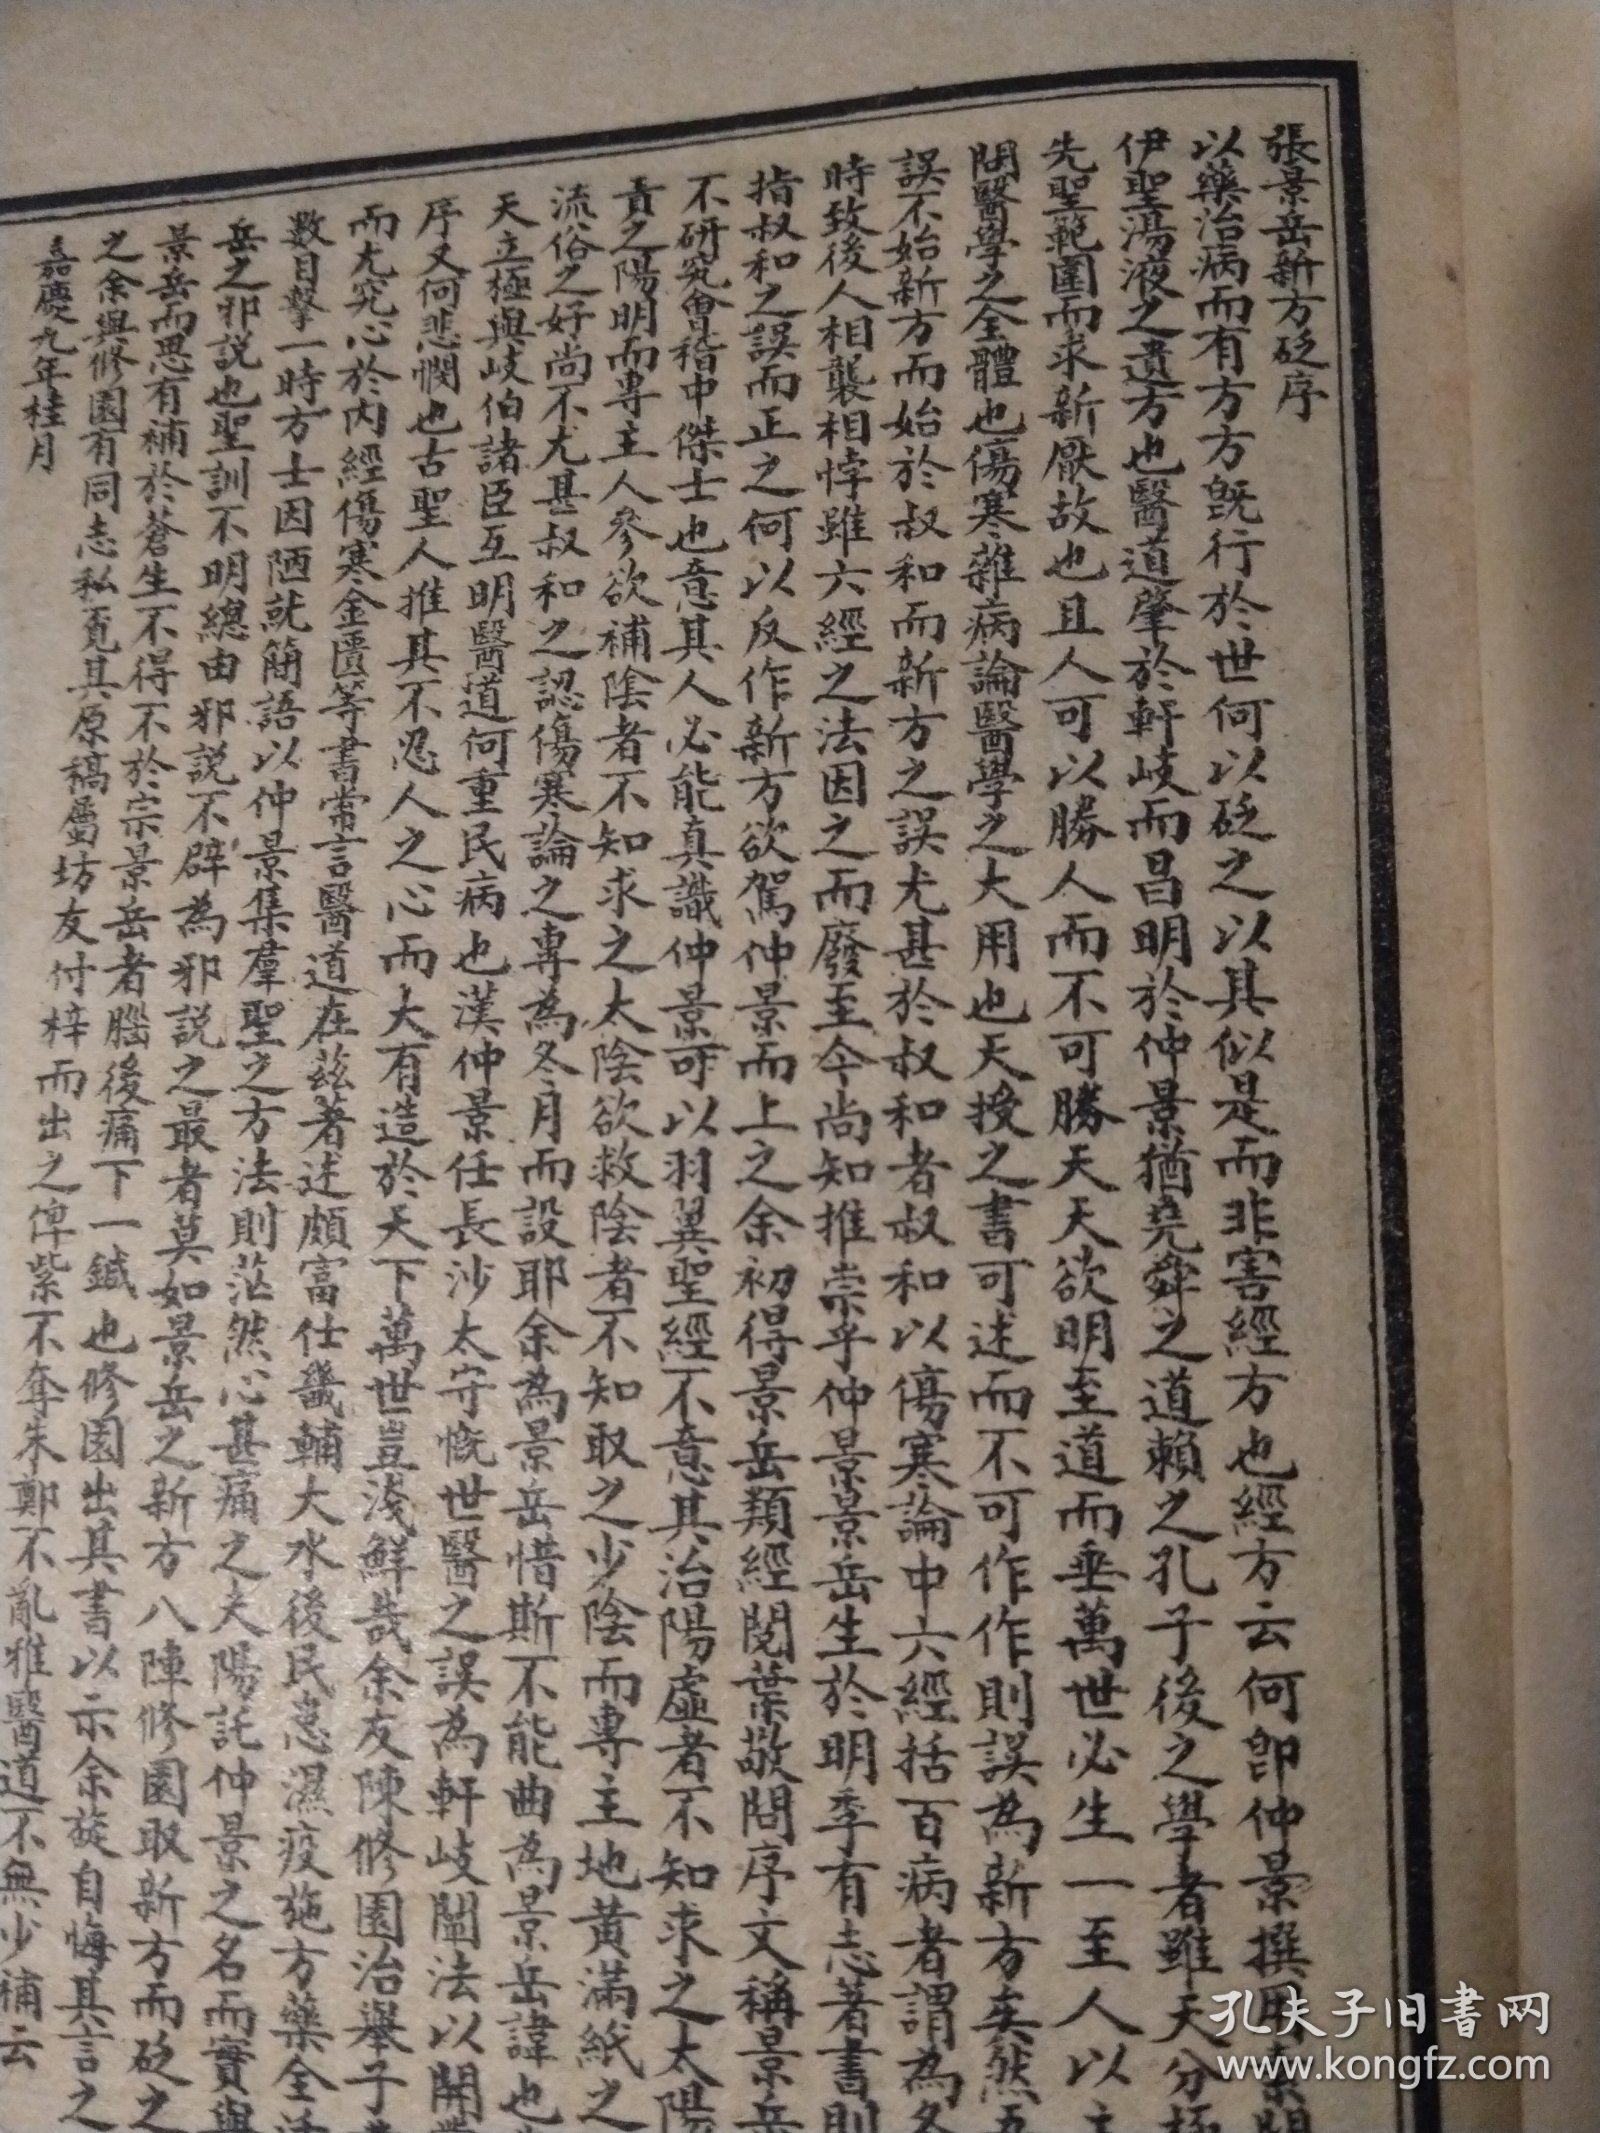 張景岳新方砭序
以藥治病而有方方旣行於世何以砭之以其似是而非害經方也經方云何卽仲景撰用素問
伊聖湯液之遺方也醫道肇於軒岐而昌明於仲景猶堯舜之道賴之孔子後之學者雖天分極
先聖範圍而求新厭故也且人可以勝人而不可勝天天欲明至道而垂萬世必生一至人以主
問醫學之全體也傷寒雜病論醫學之大用也天授之書可述而不可作作則誤為新方矣然五
誤不始新方而始於叔和而新方之誤尤甚於叔和者叔和以傷寒論中六經括百病者謂為冬
時致後人相襲相悖雖六經之法因之而廢至今尚知推崇乎仲景景岳生於明季有志著書則
指叔和之誤而正之何以反作新方欲駕仲景而上之余初得景岳類經閱葉敬問序文稱景岳
不研究會稽中傑士也意其人必能真識仲景可以羽翼聖經不意其治陽虛者不知求之太陽
責之陽明而專主人參欲補陰者不知求之太陰欲救陰者不知取之少陰而專主地黃滿紙之
流俗之好尚不尤甚叔和之認傷寒論之專為冬月而設耶余為景岳惜斯不能曲為景岳諱也
天立極與岐伯諸臣互明醫道何重民病也漢仲景任長沙太守慨世醫之誤為軒岐闡法以開
序又何悲憫也古聖人推其不忍人之心而大有造於天下萬世豈淺鮮哉余友陳修園治舉子
而尤究心於內經傷寒金匱等書常言醫道在茲著述頗富仕畿輔大水後民患濕疫施方藥全活
數目擊一時方士因陋就簡語以仲景集羣聖之方法則茫然心甚痛之夫陽託仲景之名而實與
岳之邪說也聖訓不明總由邪說不辟為邪說之最者莫如景岳之新方八陣修園取新方而砭之
景岳而思有補於蒼生不得不於宗景岳者腦後痛下一鍼也修園出其書以示余旋自悔其言之
之余與修園有同志私覓其原稿屬坊友付梓而出之俾紫不奪朱鄭不亂雅醫道不無少補云
嘉慶九年桂月
孔夫子旧書网
www.kongfz.com